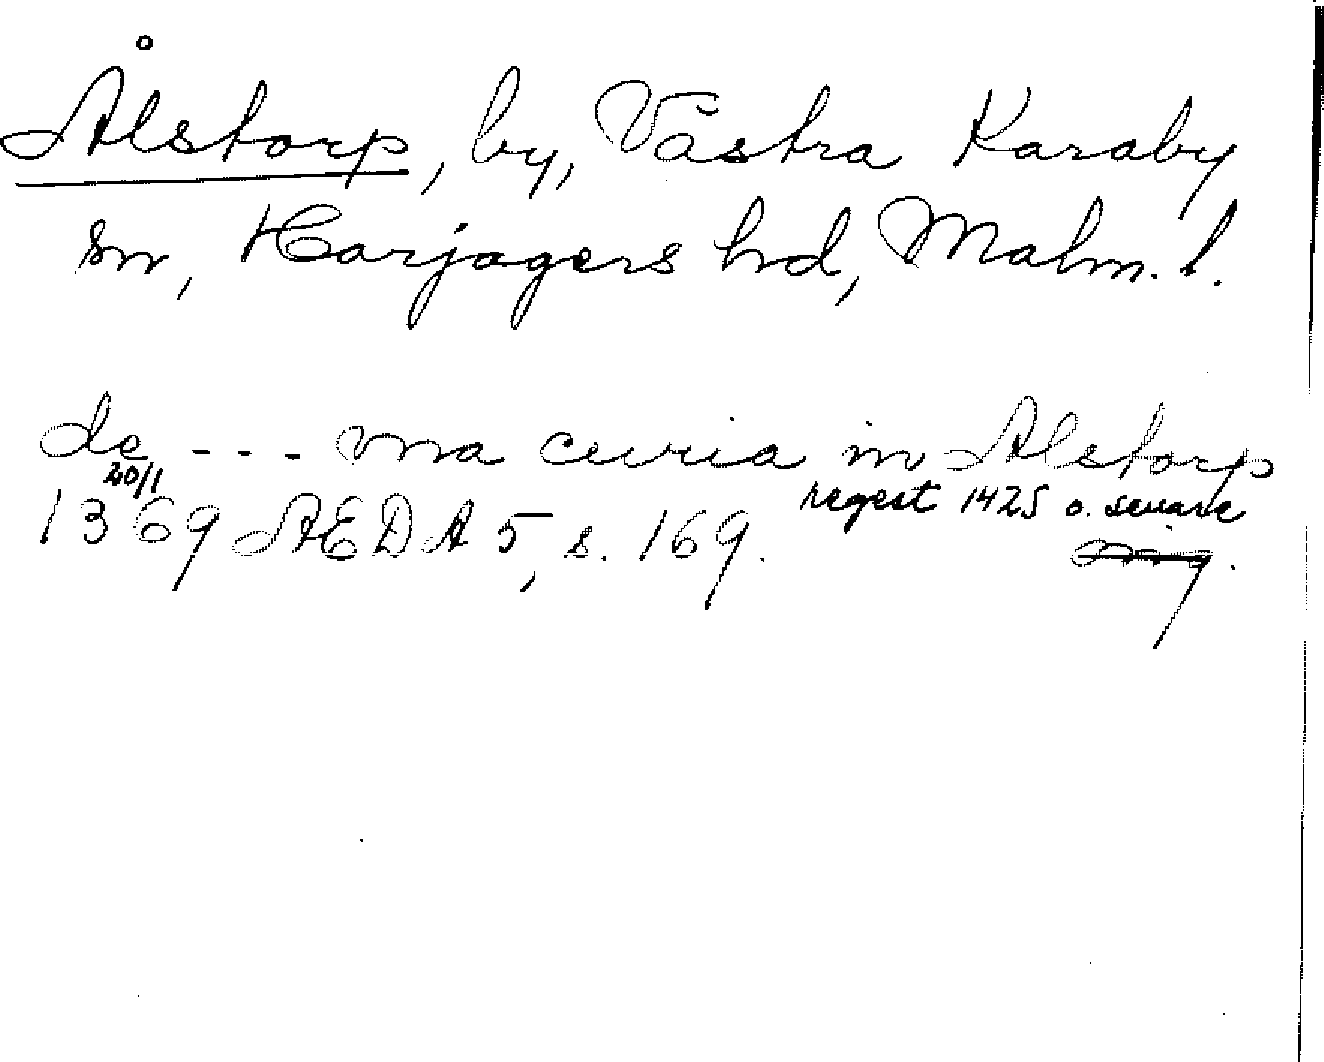 Ålstorp, by, Västra Karaby
sn, Harjagers hd, Malm. l.
de --- vna curia in Alstorp
20/1
1369 ÆDA 5, s. 169.
regest 1425 o. senare